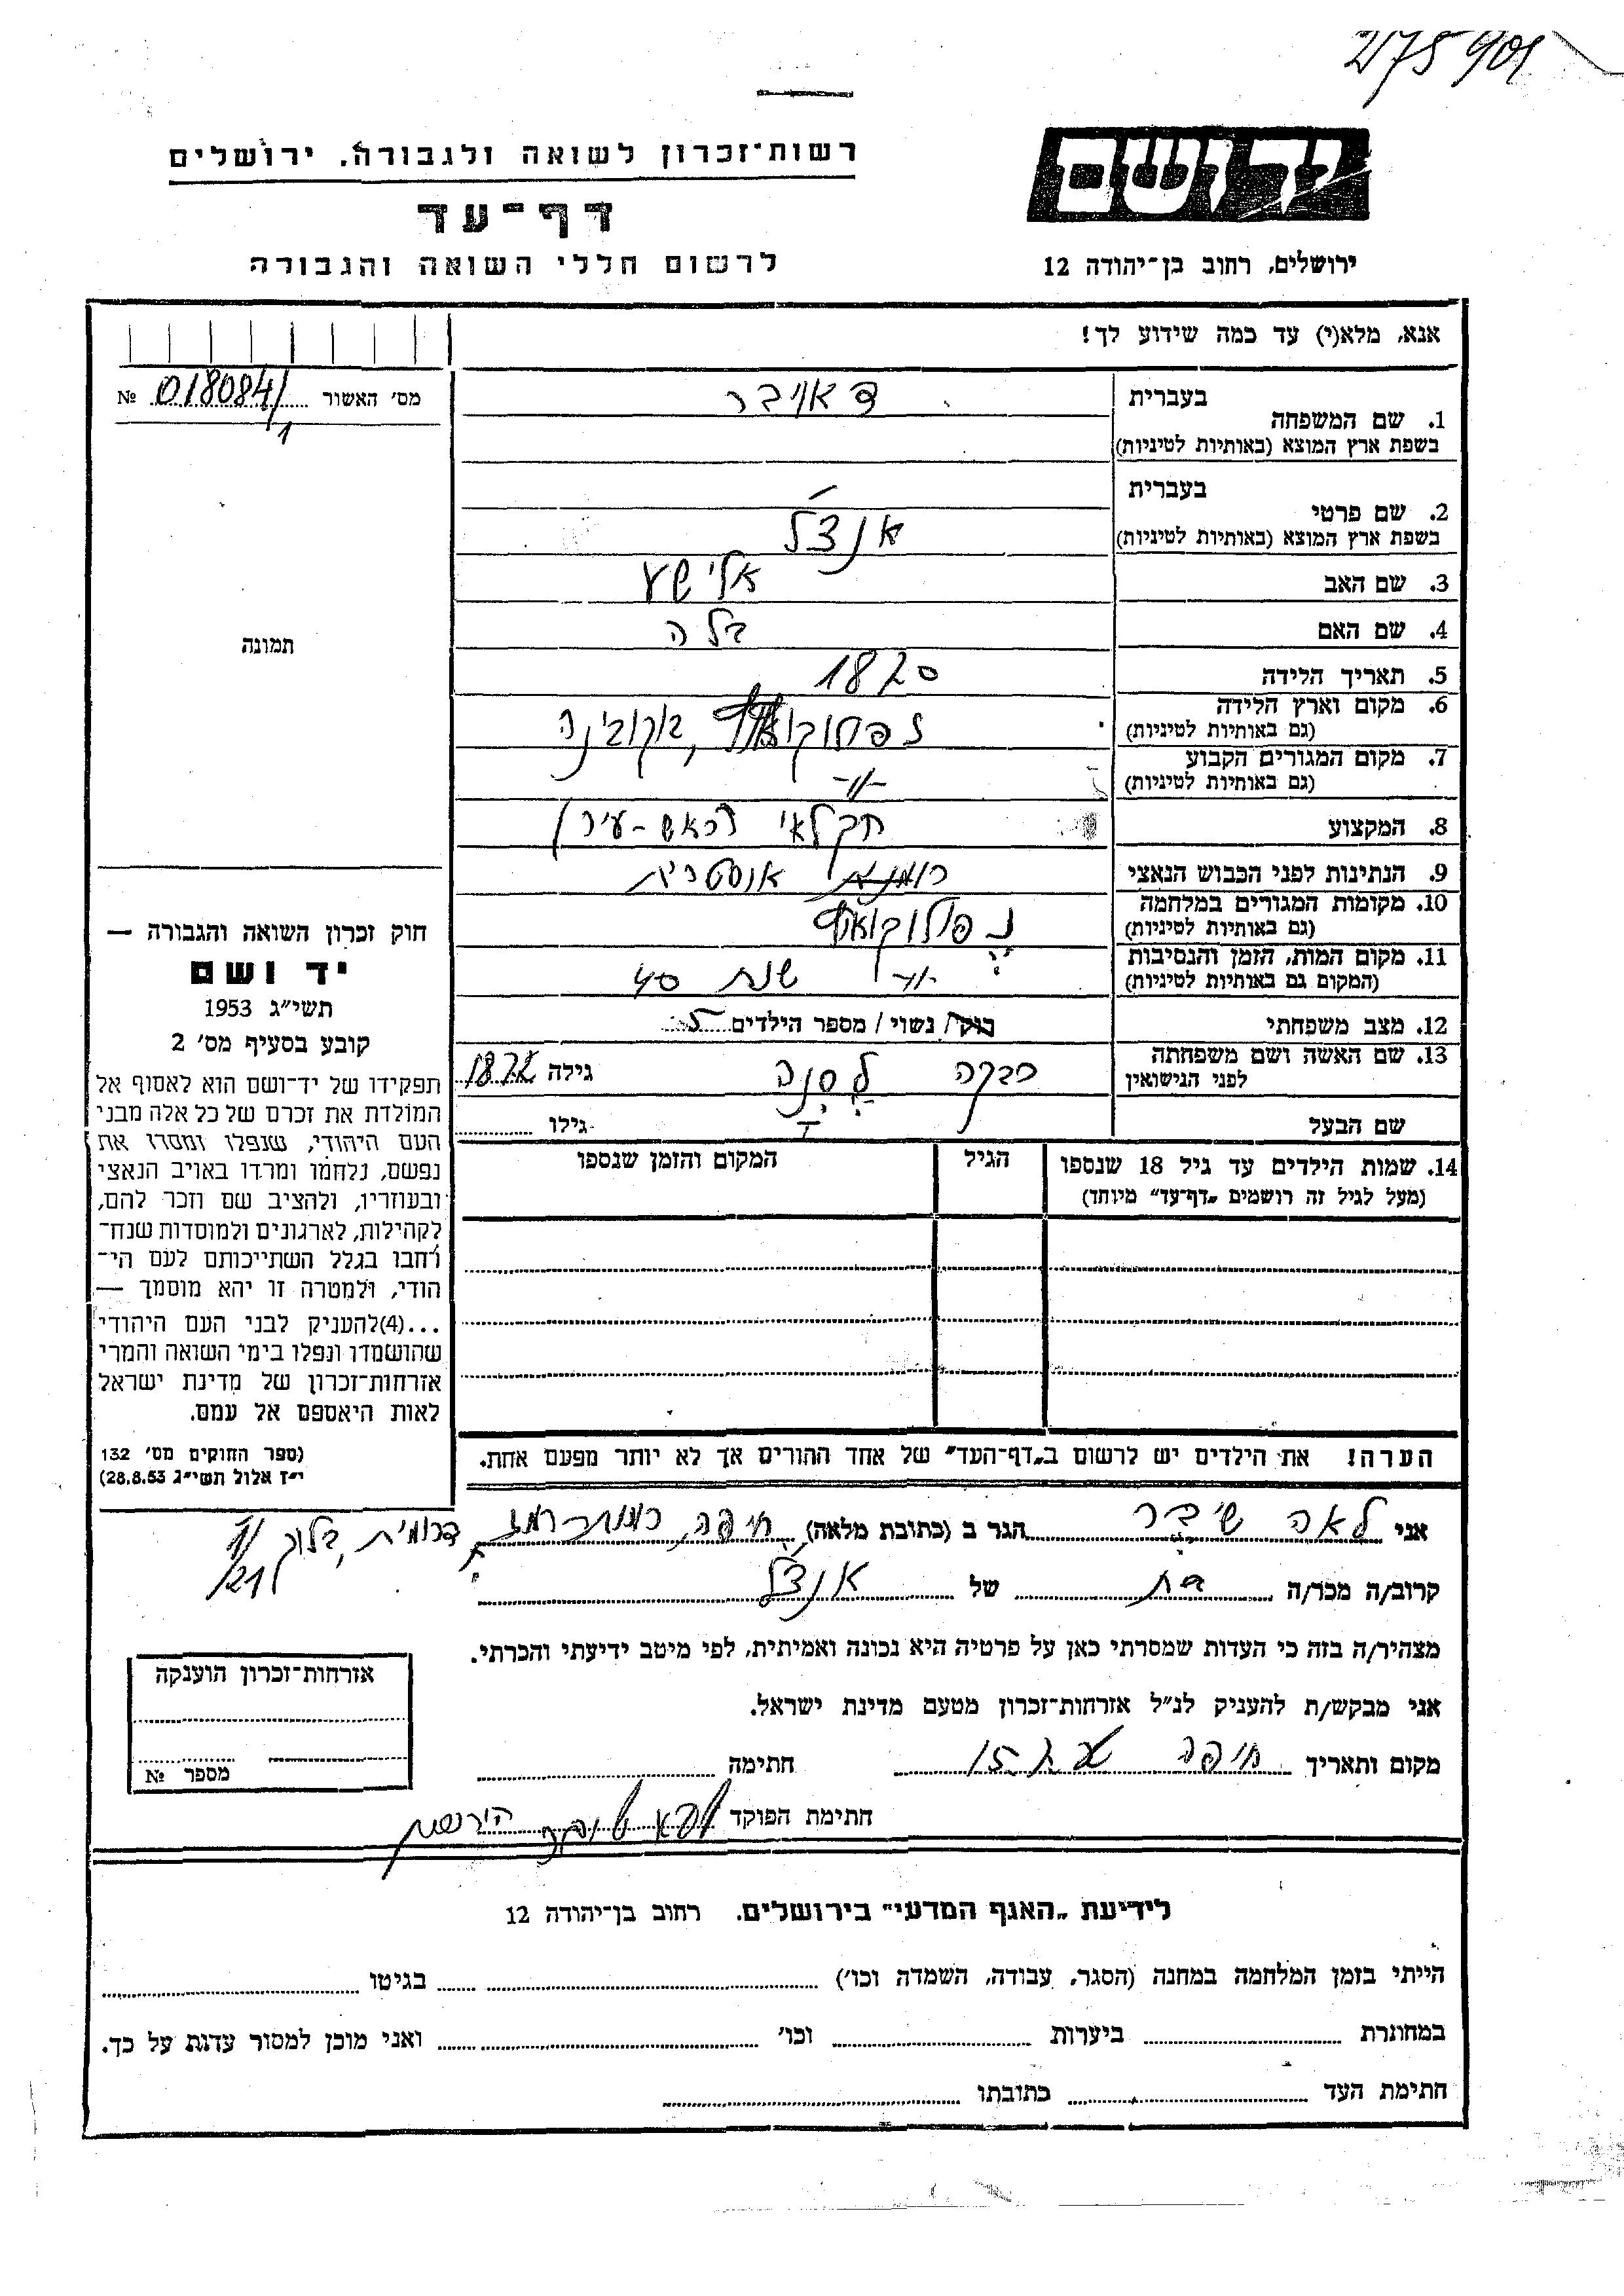 275901
רשות-זכרון לשואה ולגבורה. ירושלים
דף-עד
לרשום חללי השואה והגבורה
יד ושם
ירושלים, רחוב בן-יהודה 12
אנא, מלא(י) עד כמה שידוע לך!
מס׳ האשור № 018084/1
תמונה
בעברית
1. שם המשפחה
בשפת ארץ המוצא (באותיות לטיניות)
בעברית
2. שם פרטי
בשפת ארץ המוצא (באותיות לטיניות)
אנצ׳ל
3. שם האב אלישע
4. שם האם בלה
5. תאריך הלידה 1870
6. מקום וארץ הלידה
(גם באותיות לטיניות)
בוקובינה
7. מקום המגורים הקבוע
(גם באותיות לטיניות)
-"-
8. המקצוע חקלאי (ראש-עיר)
9. הנתינות לפני הכבוש הנאצי אוסטרית
10. מקומות המגורים במלחמה
(גם באותיות לטיניות)
11. מקום המות, הזמן והנסיבות
(המקום גם באותיות לטיניות)
-"- שנת 40
12. מצב משפחתי רווק / נשוי / מספר הילדים 5
13. שם האשה ושם משפחתה
לפני הנישואין
רבקה גילה
שם הבעל גילו
14. שמות הילדים עד גיל 18 שנספו
(מעל לגיל זה רושמים „דף-עד" מיוחד)
הגיל
המקום והזמן שנספו
הערה! את הילדים יש לרשום ב„דף-העד" של אחד ההורים אך לא יותר מפעם אחת.
חוק זכרון השואה והגבורה —
יד ושם
תשי״ג 1953
קובע בסעיף מס׳ 2
תפקידו של יד-ושם הוא לאסוף אל
המולדת את זכרם של כל אלה מבני
העם היהודי, שנפלו ומסרו את
נפשם, נלחמו ומרדו באויב הנאצי
ובעוזריו, ולהציב שם וזכר להם,
לקהילות, לארגונים ולמוסדות שנח-
רחבו בגלל השתייכותם לעם הי-
הודי, ולמטרה זו יהא מוסמך —
...(4)להעניק לבני העם היהודי
שהושמדו ונפלו בימי השואה והמרי
אזרחות-זכרון של מדינת ישראל
לאות היאספם אל עמם.
(ספר החוקים מס׳ 132
י״ז אלול תשי״ג 28.8.53)
אני לאה הגר ב (כתובת מלאה) חיפה, רמת-רמז דרומית, בלוק
קרוב/ה מכר/ה בת של אנצ׳ל
מצהיר/ה בזה כי העדות שמסרתי כאן על פרטיה היא נכונה ואמיתית, לפי מיטב ידיעתי והכרתי.
אני מבקש/ת להעניק לנ״ל אזרחות-זכרון מטעם מדינת ישראל.
מקום ותאריך חיפה חתימה
חתימת הפוקד
אזרחות-זכרון הוענקה
מספר №
לידיעת „האגף המדעי" בירושלים. רחוב בן-יהודה 12
הייתי בזמן המלחמה במחנה (הסגר, עבודה, השמדה וכו׳) בגיטו
במחתרת ביערות וכו׳ ואני מוכן למסור עדות על כך.
חתימת העד כתובתו